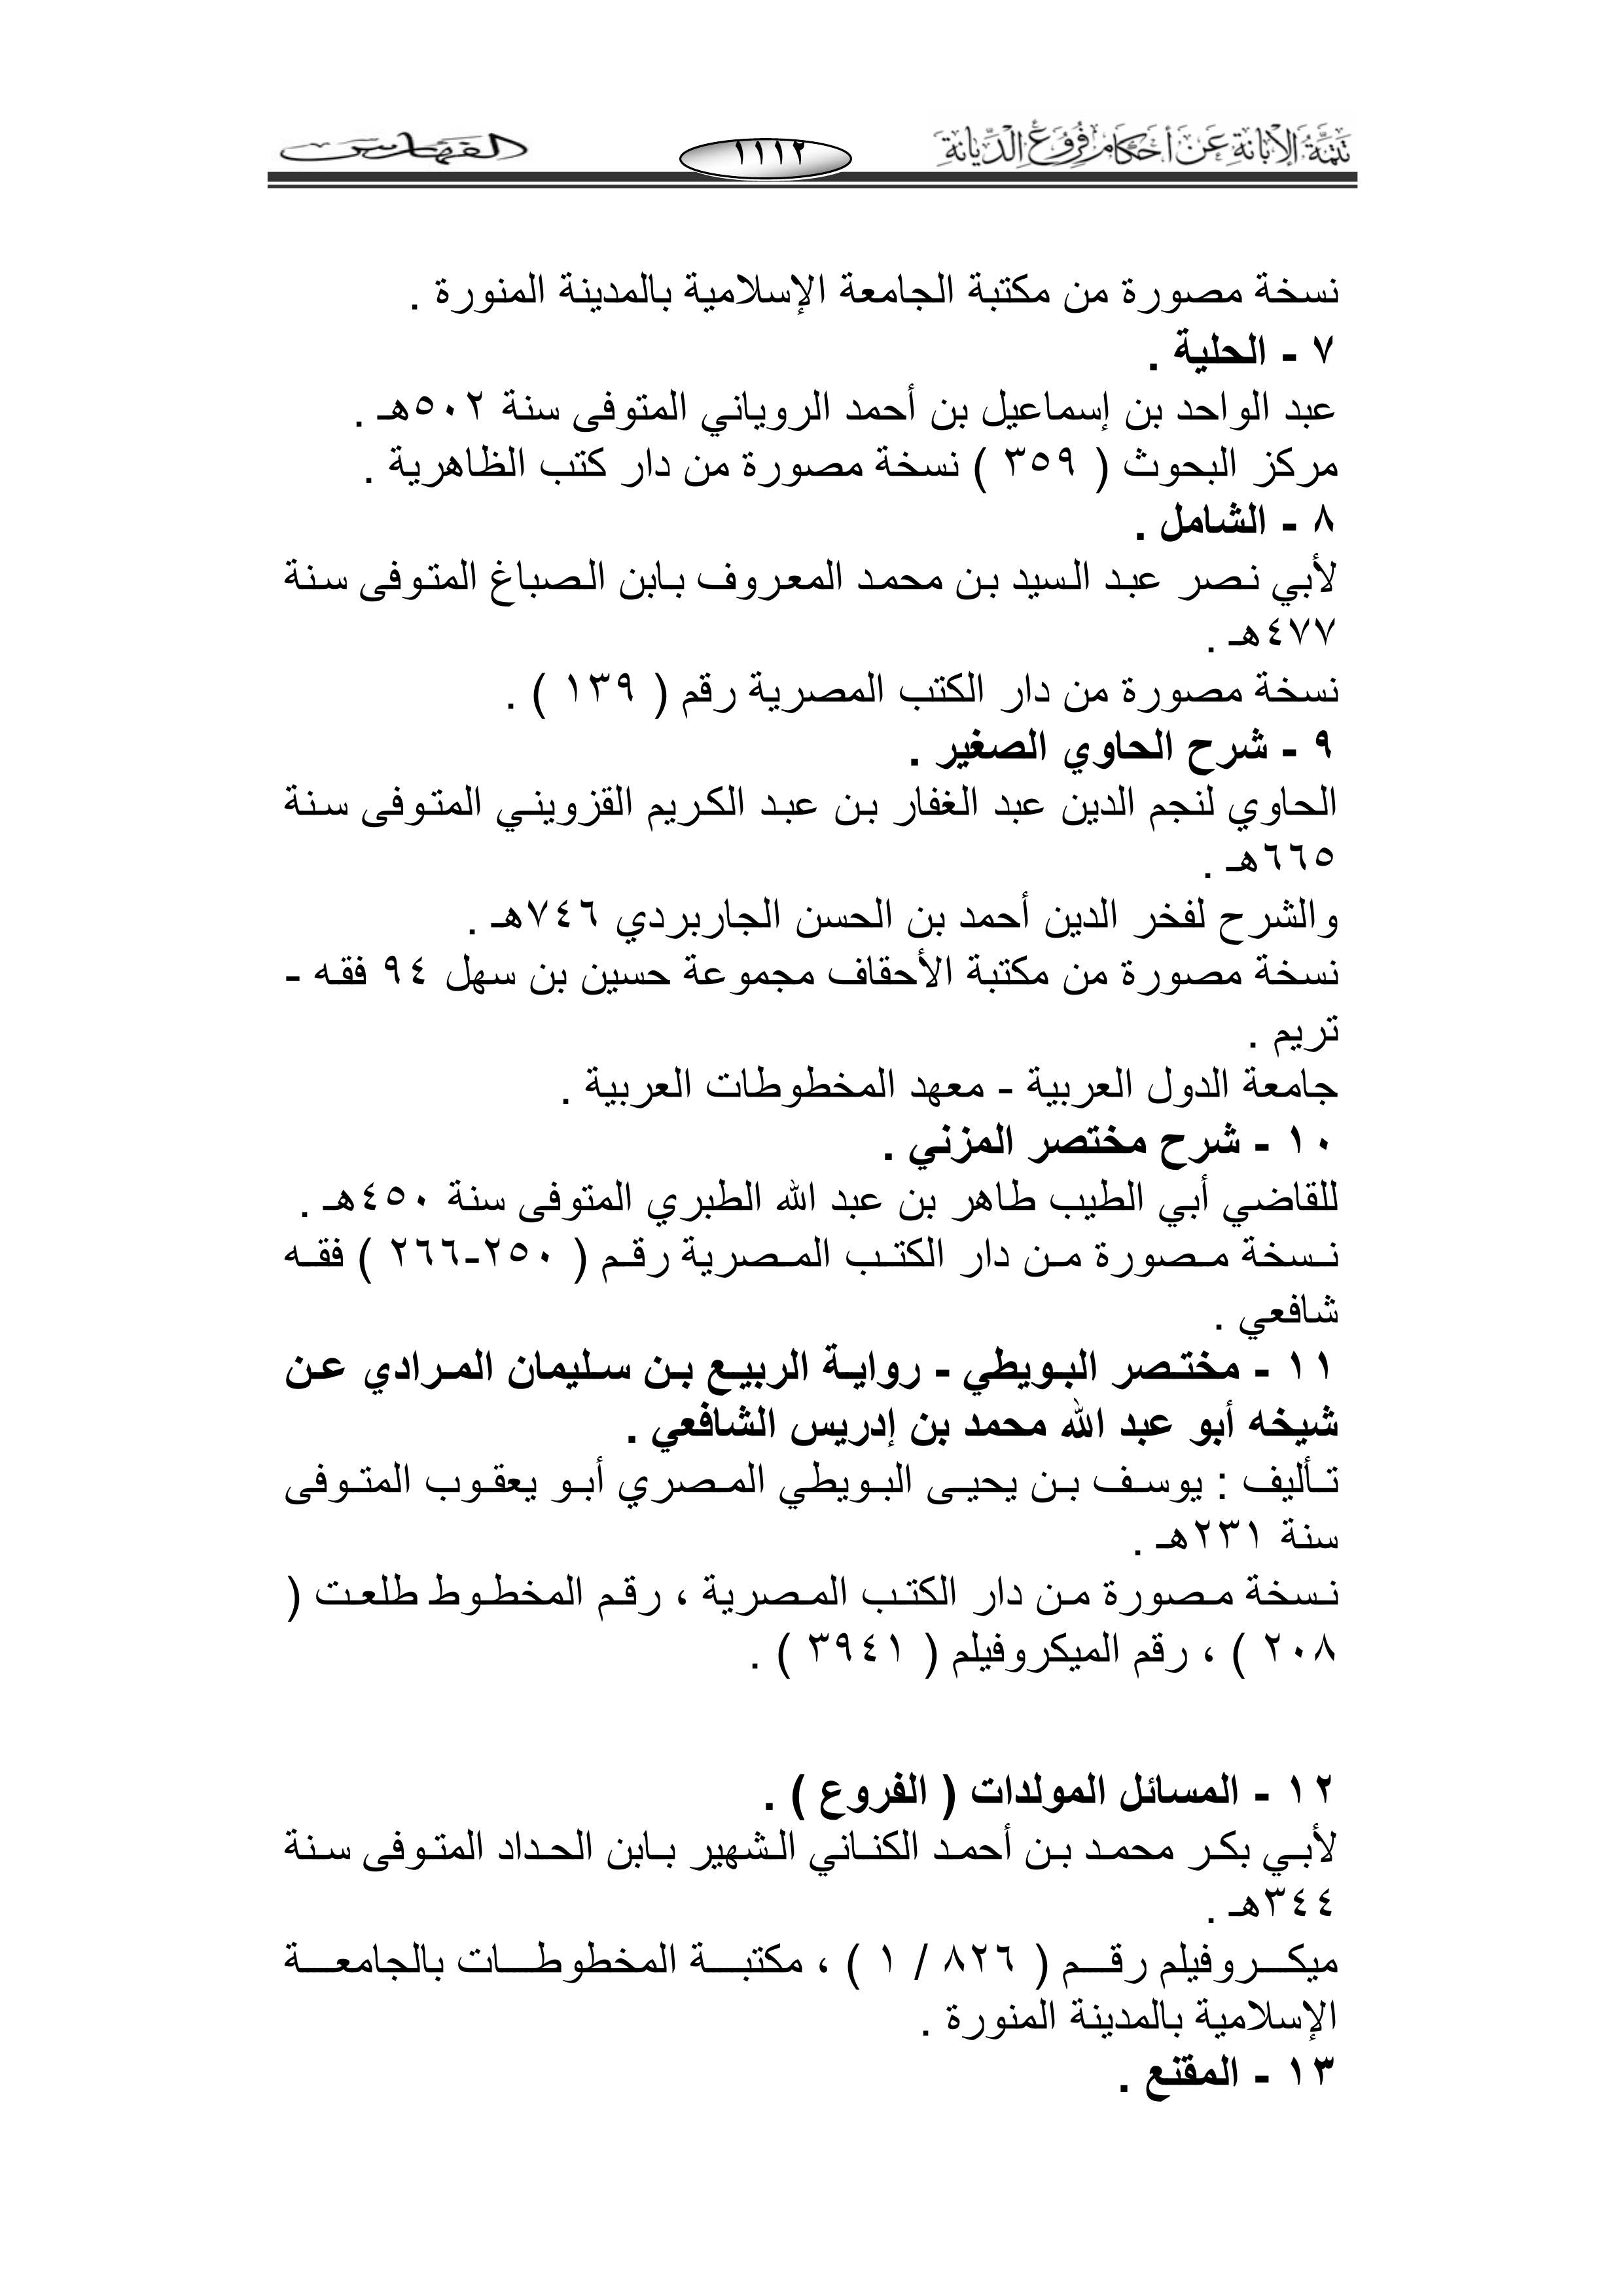 تتمة الإبانة عن أحكام فروع الديانة ١١١٢ الفهارس
نسخة مصورة من مكتبة الجامعة الإسلامية بالمدينة المنورة .
٧ - الحلية .
عبد الواحد بن إسماعيل بن أحمد الروياني المتوفى سنة ٥٠٢هـ .
مركز البحوث ( ٣٥٩ ) نسخة مصورة من دار كتب الظاهرية .
٨ - الشامل .
لأبي نصر عبد السيد بن محمد المعروف بابن الصباغ المتوفى سنة
٤٧٧هـ .
نسخة مصورة من دار الكتب المصرية رقم ( ١٣٩ ) .
٩ - شرح الحاوي الصغير .
الحاوي لنجم الدين عبد الغفار بن عبد الكريم القزويني المتوفى سنة
٦٦٥هـ .
والشرح لفخر الدين أحمد بن الحسن الجاربردي ٧٤٦هـ .
نسخة مصورة من مكتبة الأحقاف مجموعة حسين بن سهل ٩٤ فقه -
تريم .
جامعة الدول العربية - معهد المخطوطات العربية .
١٠ - شرح مختصر المزني .
للقاضي أبي الطيب طاهر بن عبد الله الطبري المتوفى سنة ٤٥٠هـ .
نسخة مصورة من دار الكتب المصرية رقم ( ٢٥٠-٢٦٦ ) فقه
شافعي .
١١ - مختصر البويطي - رواية الربيع بن سليمان المرادي عن
شيخه أبو عبد الله محمد بن إدريس الشافعي .
تأليف : يوسف بن يحيى البويطي المصري أبو يعقوب المتوفى
سنة ٢٣١هـ .
نسخة مصورة من دار الكتب المصرية ، رقم المخطوط طلعت (
٢٠٨ ) ، رقم الميكروفيلم ( ٣٩٤١ ) .
١٢ - المسائل المولدات ( الفروع ) .
لأبي بكر محمد بن أحمد الكناني الشهير بابن الحداد المتوفى سنة
٣٤٤هـ .
ميكروفيلم رقم ( ٨٢٦ / ١ ) ، مكتبة المخطوطات بالجامعة
الإسلامية بالمدينة المنورة .
١٣ - المقنع .